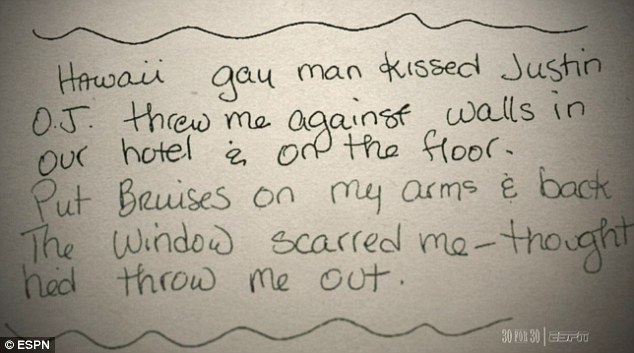 Hawaii gay man kissed Justin
O.J. threw me against walls in
our hotel & on the floor.
Put Bruises on my arms & back
The window scarred me - thought
he'd throw me out.
30 FOR 30 | ESPN
© ESPN